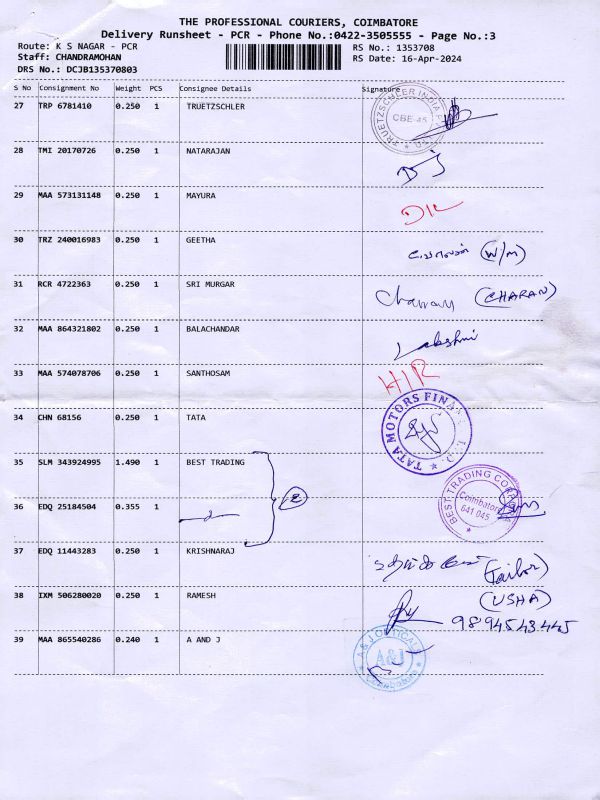 THE PROFESSIONAL COURIERS, COIMBATORE
Delivery Runsheet - PCR - Phone No.:0422-3505555 - Page No.:3
Route: K S NAGAR - PCR
RS No.: 1353708
Staff: CHANDRAMOHAN
RS Date: 16-Apr-2024
DRS No.: DCJB135370803
S No Consignment No Weight PCS Consignee Details Signature
27 TRP 6781410 0.250 1 TRUETZSCHLER
TRUETZSCHLER INDIA
CBE-45
28 TMI 20170726 0.250 1 NATARAJAN
29 MAA 573131148 0.250 1 MAYURA
30 TRZ 240016983 0.250 1 GEETHA
(W/M)
31 RCR 4722363 0.250 1 SRI MURGAR
(CHARAN)
32 MAA 864321802 0.250 1 BALACHANDAR
Lakshmi
33 MAA 574078706 0.250 1 SANTHOSAM
H/R
34 CHN 68156 0.250 1 TATA
TATA MOTORS FINA
35 SLM 343924995 1.490 1 BEST TRADING
2
BEST TRADING COR
Coimbatore
641 045
36 EDQ 25184504 0.355 1
37 EDQ 11443283 0.250 1 KRISHNARAJ
(Tailor)
38 IXM 506280020 0.250 1 RAMESH
(USHA)
9894543445
39 MAA 865540286 0.240 1 A AND J
A & J OPTICALS
A&J